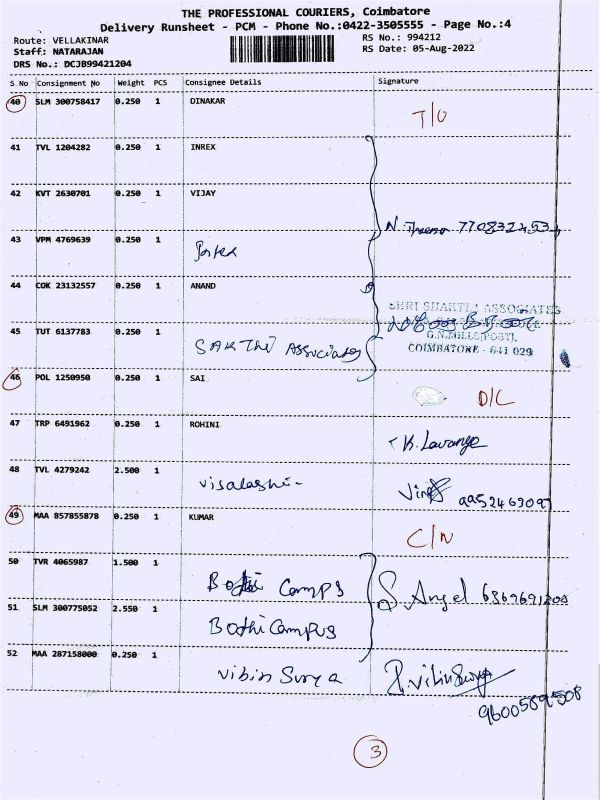 THE PROFESSIONAL COURIERS, Coimbatore
Delivery Runsheet - PCM - Phone No.:0422-3505555 - Page No.:4
Route: VELLAKINAR
RS No.: 994212
Staff: NATARAJAN
RS Date: 05-Aug-2022
DRS No.: DCJB99421204
S No Consignment No Weight PCS Consignee Details Signature
40 SLM 300758417 0.250 1 DINAKAR
T/O
41 TVL 1204282 0.250 1 INREX
42 KVT 2630701 0.250 1 VIJAY
N.
43 VPM 4769639 0.250 1
44 COK 23132557 0.250 1 ANAND
SHRI SHAKTHI ASSOCIATES
45 TUT 6137783 0.250 1 SAKThi Associates
G.N.MILLS(POST),
COIMBATORE - 641 029
46 POL 1250950 0.250 1 SAI
D/C
47 TRP 6491962 0.250 1 ROHINI
K. Lavanya
48 TVL 4279242 2.500 1 visalashi-
49 MAA 857855878 0.250 1 KUMAR
C/N
50 TVR 4065987 1.500 1 Camps
S. Angel
51 SLM 300775052 2.550 1 Bodhi Campus
52 MAA 287158000 0.250 1 vibin Surya
9600589508
3